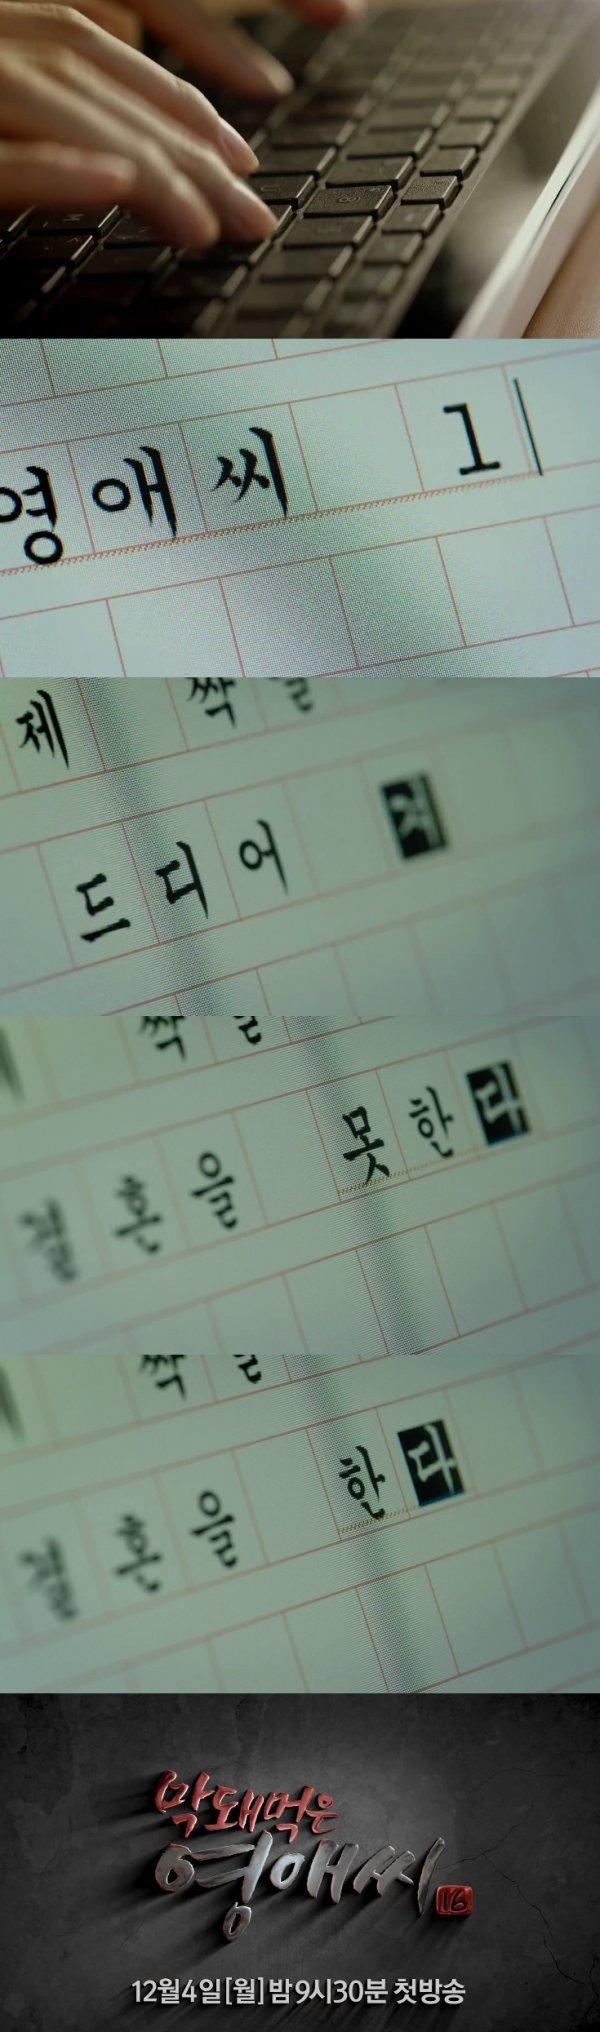 영애씨 1
제 짝을
드디어
짝을
결혼을 못한다
짝을
결혼을 한다
막돼먹은
영애씨 16
12월4일[월] 밤 9시30분 첫방송